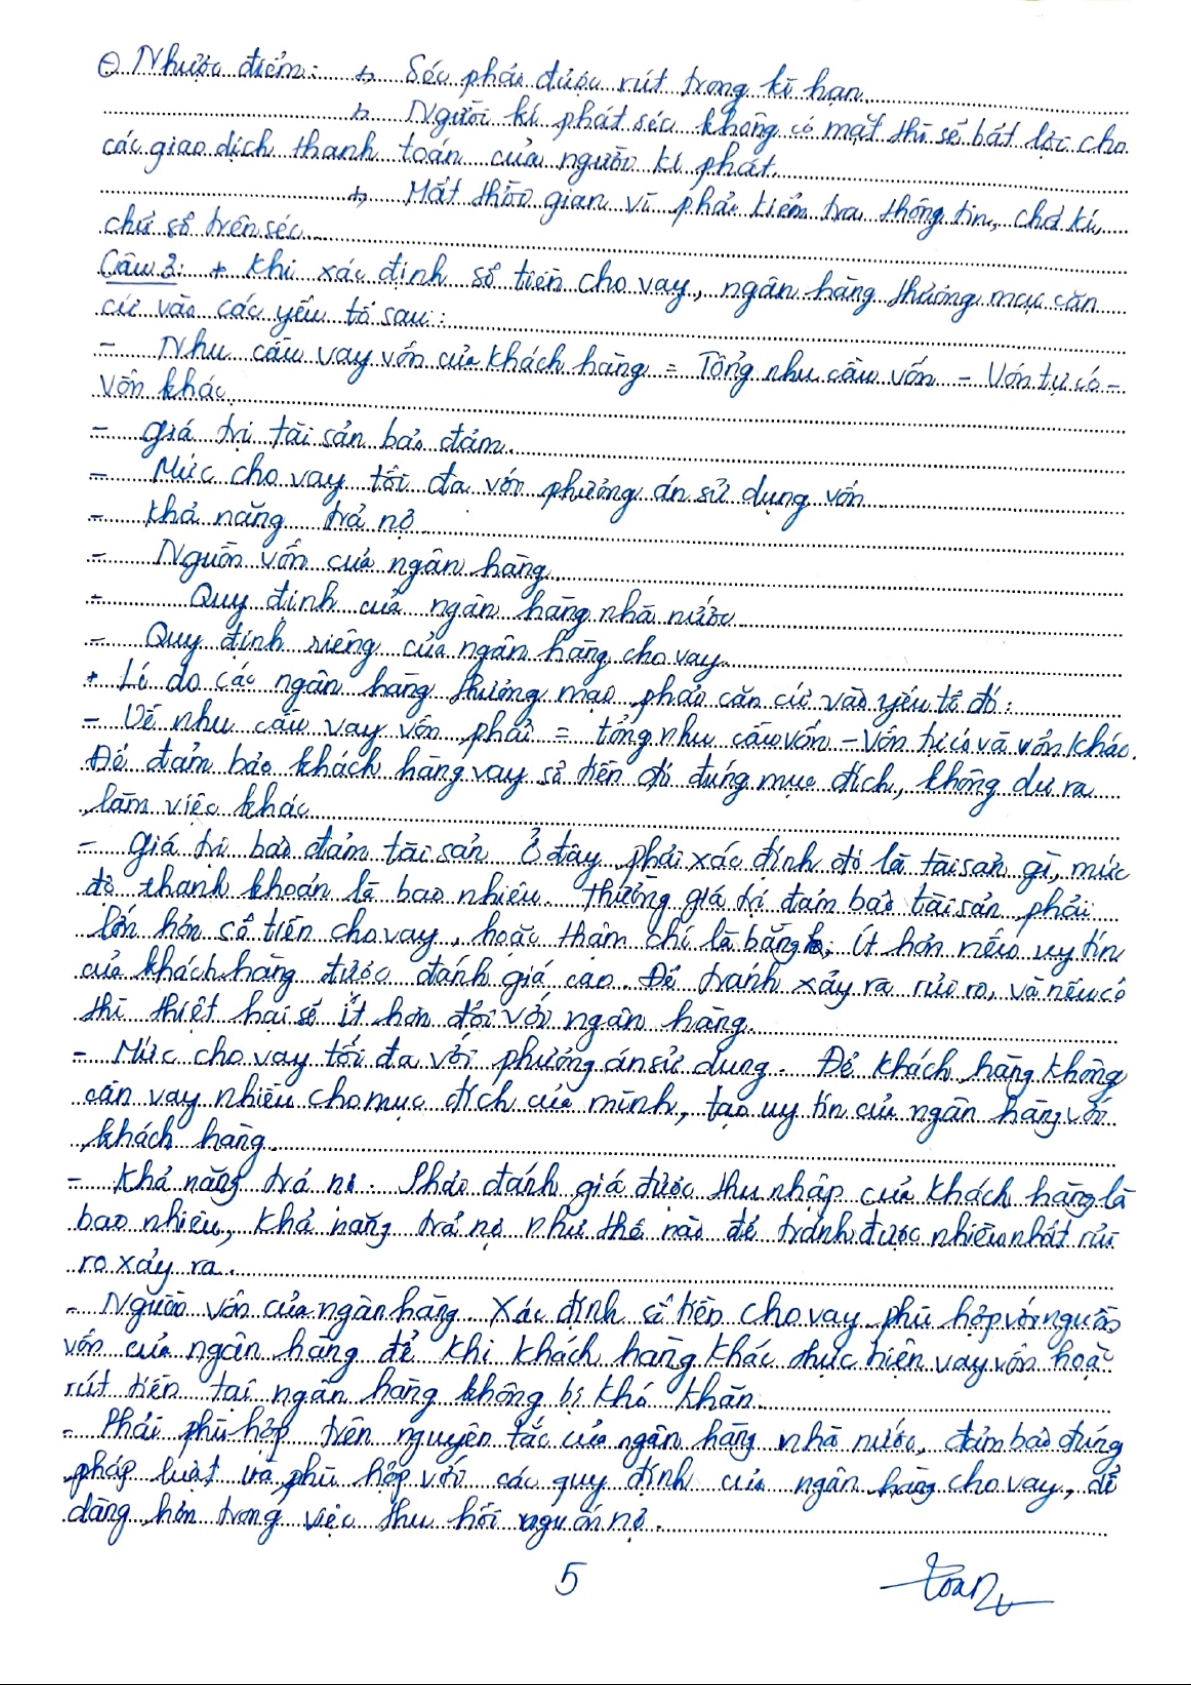 ⊖ Nhược điểm: ↳ Séc phải được rút trong kì hạn
↳ Người kí phát séc không có mặt thì sẽ bất lợi cho
các giao dịch thanh toán của người kí phát.
↳ Mất thời gian vì phải kiểm tra thông tin, chữ kí,
chữ số trên séc.
Câu 3: + Khi xác định số tiền cho vay, ngân hàng thương mại căn
cứ vào các yếu tố sau:
- Nhu cầu vay vốn của khách hàng = Tổng nhu cầu vốn - Vốn tự có -
Vốn khác.
- giá trị tài sản bảo đảm.
- Mức cho vay tối đa với phương án sử dụng vốn
- Khả năng trả nợ
- Nguồn vốn của ngân hàng.
- Quy định của ngân hàng nhà nước
- Quy định riêng của ngân hàng cho vay.
+ Lí do các ngân hàng thương mại phải căn cứ vào yếu tố đó:
- Về nhu cầu vay vốn phải = tổng nhu cầu vốn - Vốn tự có và vốn khác.
Để đảm bảo khách hàng vay số tiền đó đúng mục đích, không dư ra
làm việc khác
- giá trị bảo đảm tài sản Ở đây phải xác định đó là tài sản gì, mức
độ thanh khoản là bao nhiêu. Thường giá trị đảm bảo tài sản phải
lớn hơn số tiền cho vay, hoặc thậm chí là bằng, ít hơn nếu uy tín
của khách hàng được đánh giá cao. Để tránh xảy ra rủi ro, và nếu có
thì thiệt hại sẽ ít hơn đối với ngân hàng.
- Mức cho vay tối đa với phương án sử dụng. Để khách hàng không
cần vay nhiều cho mục đích của mình, tạo uy tín của ngân hàng với
khách hàng.
- Khả năng trả nợ. Phải đánh giá được thu nhập của khách hàng là
bao nhiêu, khả năng trả nợ như thế nào để tránh được nhiều nhất rủi
ro xảy ra.
- Nguồn vốn của ngân hàng. Xác định số tiền cho vay phù hợp với nguồn
vốn của ngân hàng để khi khách hàng khác thực hiện vay vốn hoặc
rút tiền tại ngân hàng không bị khó khăn.
- Phải phù hợp trên nguyên tắc của ngân hàng nhà nước, đảm bảo đúng
pháp luật và phù hợp với các quy định của ngân hàng cho vay, dễ
dàng hơn trong việc thu hồi nguồn nợ.
5